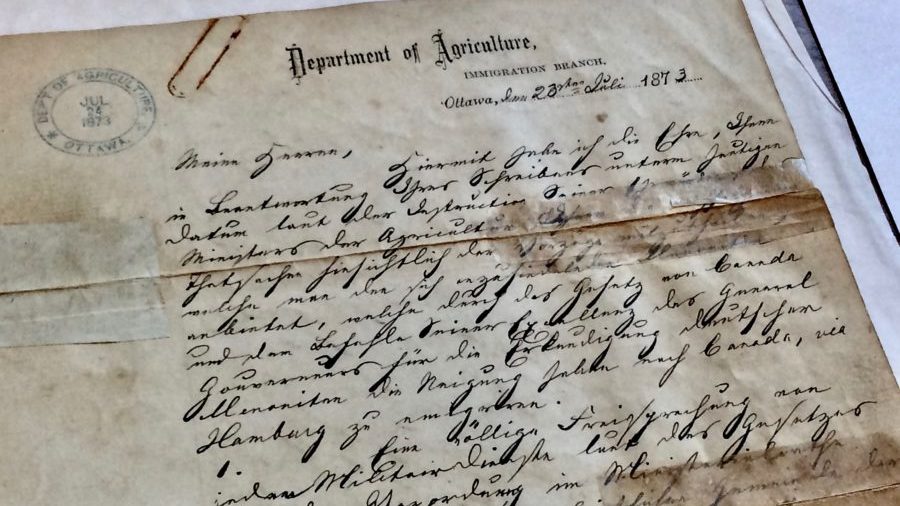 Department of Agriculture,
IMMIGRATION BRANCH.
DEPT OF AGRICULTURE
JUL
24
1873
OTTAWA.
Ottawa, den 23sten Juli 1873
Meine Herren,
Hiermit habe ich die Ehre, Ihnen
in Beantwortung Ihres Schreibens unterm heutigen
Datum laut der Instruction Seiner
Ministers der Agricultur
Thatsachen hinsichtlich der
welche man den sich
anbietet, welche durch das Gesetz von Canada
und dem Befehle Seiner Excellenz des General
Gouverneurs für die Erkundigung deutscher
Menoniten die Neigung haben nach Canada, via
Hamburg zu emigriren.
1. Eine völlige Freisprechung von
jedem Militair Dienste laut des Gesetzes
Verordnung im
Gemeinde der